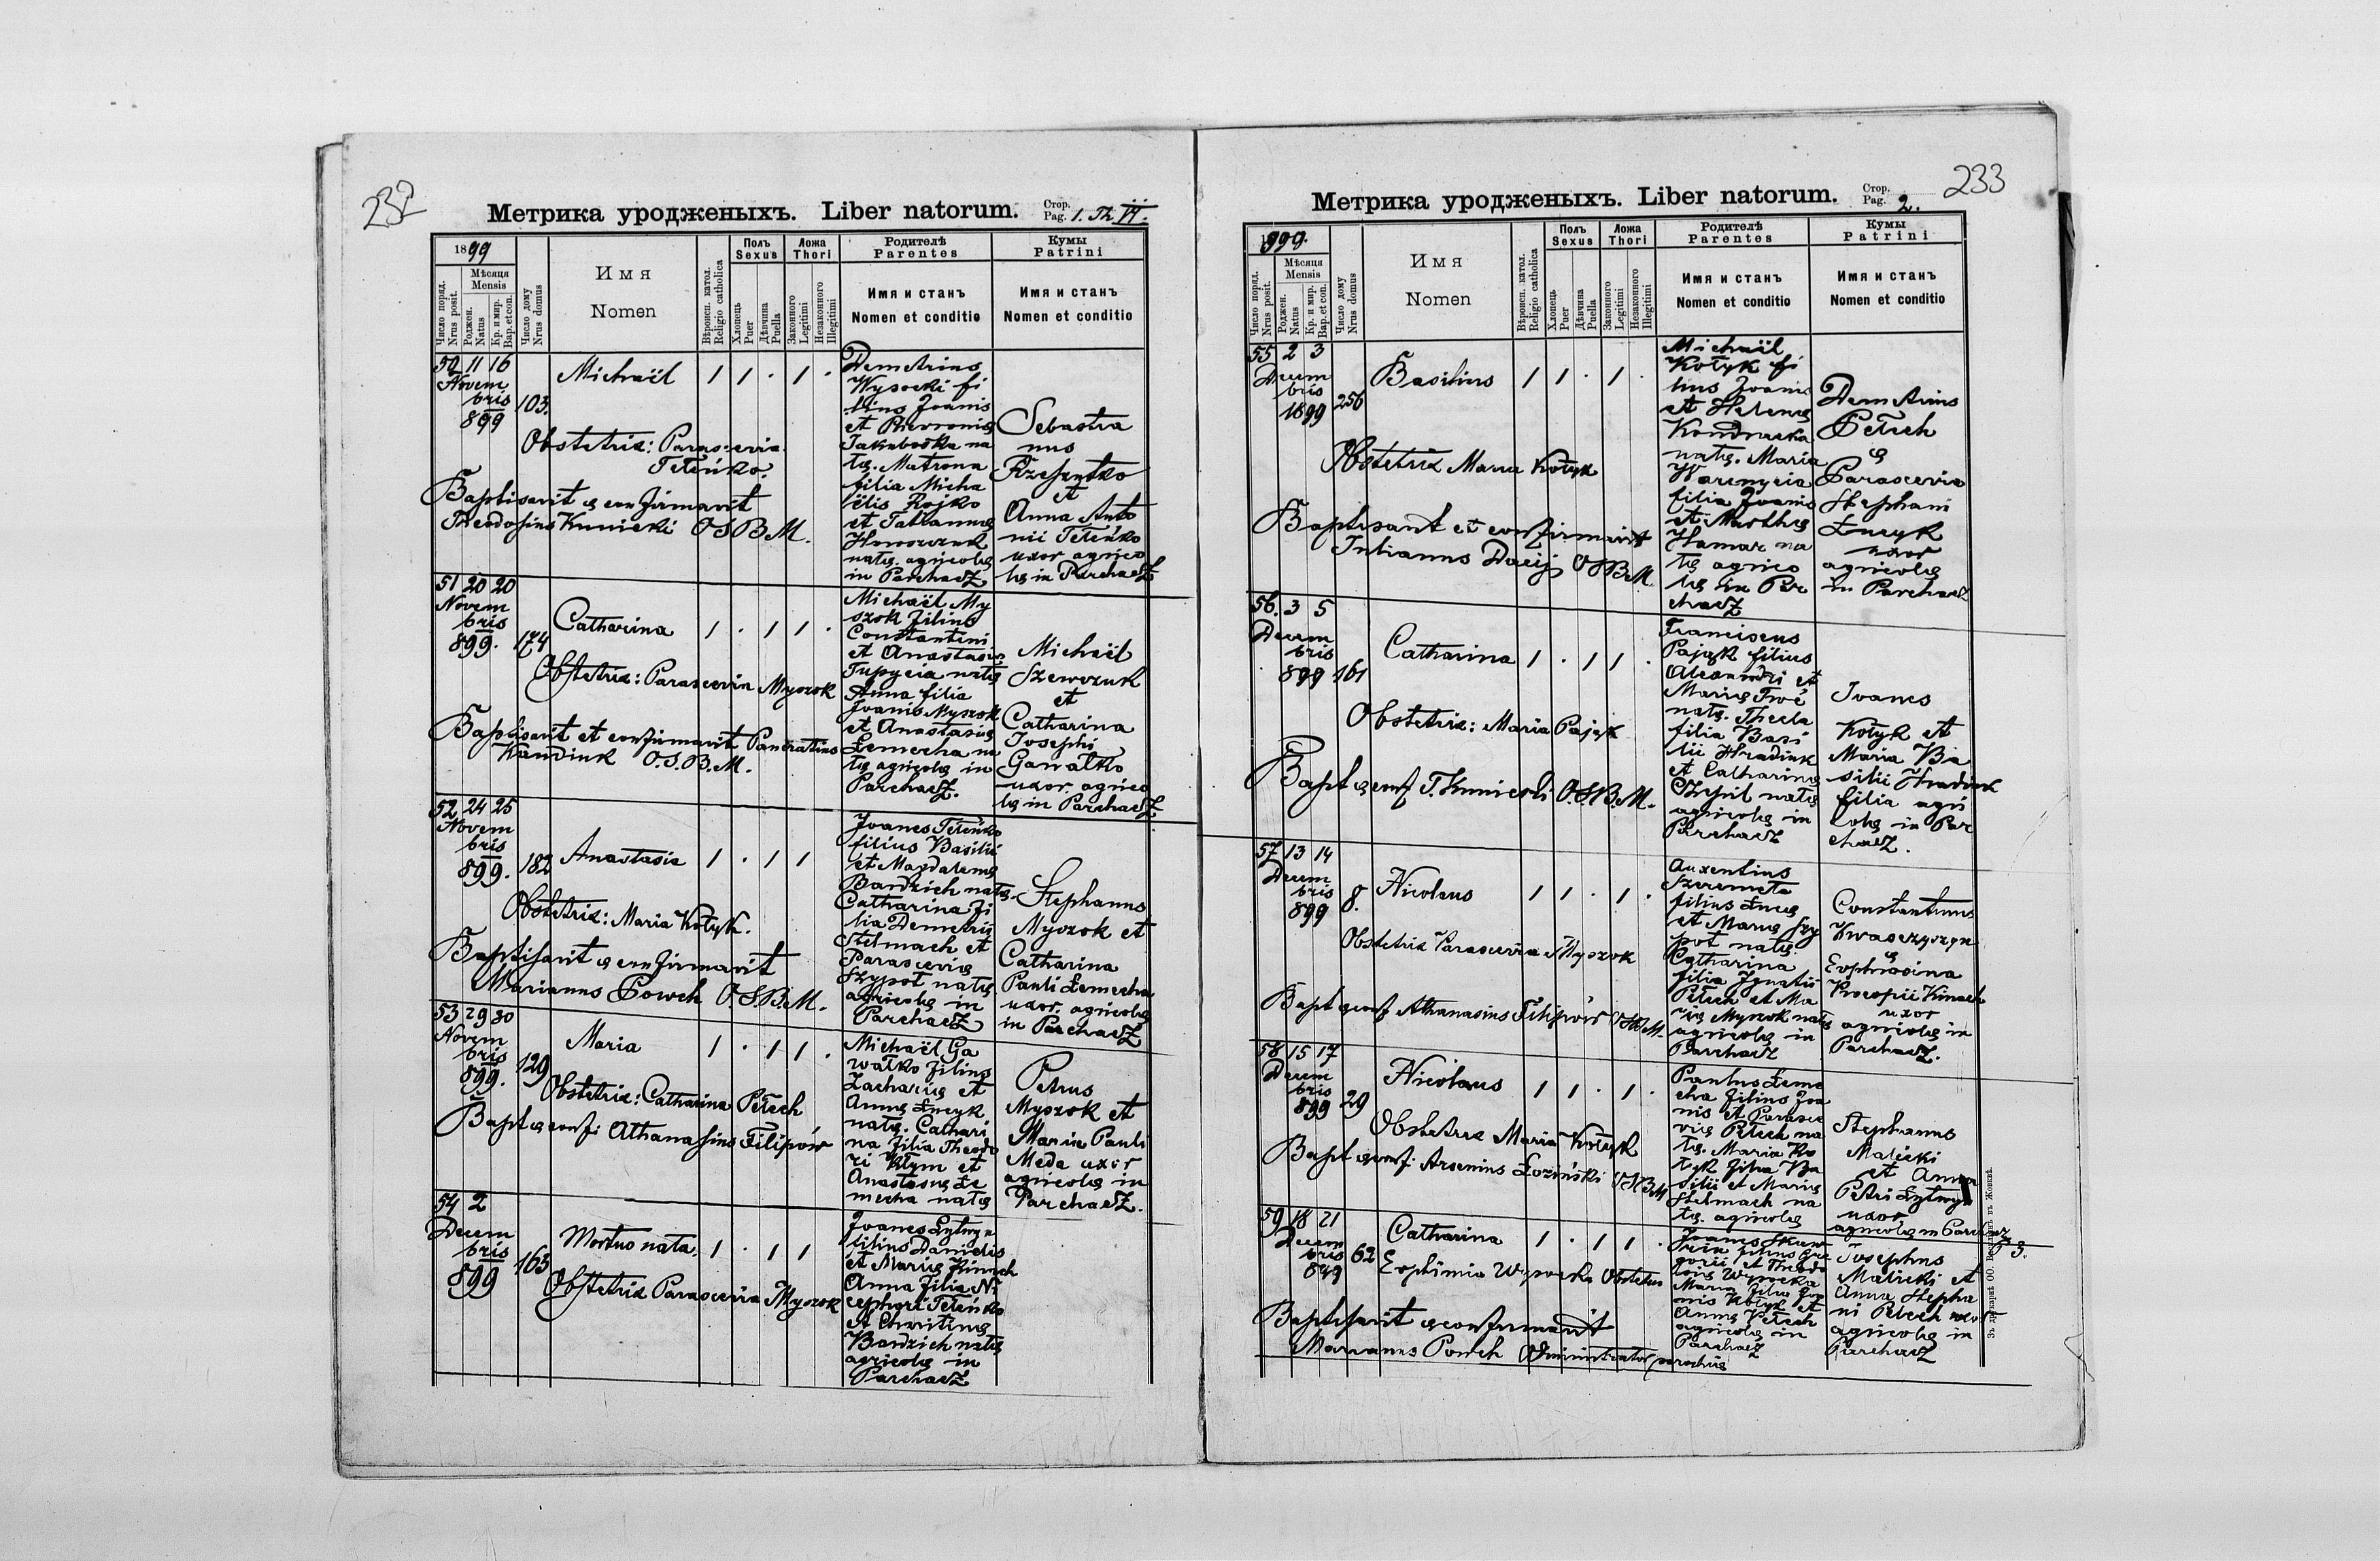 232
Метрика уродженыхъ. Liber natorum.
Стор.
Pag. 1. Th. VI.
1899
Число поряд.
Nrus posit.
Мѣсяця
Mensis
Роджен.
Natus
Кр. и мир.
Bap. et con.
Число дому
Nrus domus
Имя
Nomen
Вѣроисп. катол.
Religio catholica
Полъ
Sexus
Хлопець
Puer
Дѣвчина
Puella
Ложа
Thori
Законного
Legitimi
Незаконного
Illegitimi
Родителѣ
Parentes
Имя и станъ
Nomen et conditio
Кумы
Patrini
Имя и станъ
Nomen et conditio
50 11 16
Novem
bris
899
103.
Michaël 1 1 . 1 .
Obstetrix: Parascevia
Teteńko.
Baptisavit & confirmavit
Theodosius Kunicki OSBM.
Demetrius
Wysocki fi
lius Joanis
et
Jakuboska na
tę. Matrona
filia Micha
ëlis Rojko
et Tatiannę
natę. agricolę
in Parchacz
Sebastia
nus
et
Anna Anto
nii Teteńko
uxor agrico
lę in Parchacz
51 20 20
Novem
bris
899. 174
Catharina 1 . 1 1 .
Obstetrix: Parascevia Myszok
Baptisavit et confirmavit Pancratius
Kandiuk O.S.B.M.
Michaël My
szok filius
Constantini
et Anastasię
Tupycia natę
Anna filia
Joanis Myszok
et Anastasię
Łemecha na
tę agricolę in
Parchacz.
Michaël
Szewczuk
et
Catharina
Josephi
Gawałko
uxor. agrico
lę in Parchacz
52 24 25
Novem
bris
899. 182
Anastasia 1 . 1 1
Obstetrix: Maria Kołyk.
Baptisavit & confirmavit
Marianus Powch O.S.B.M.
Joanes Teteńko
filius Basilii
et Magdalenę
Bardzich natę.
Catharina fi
lia Demetrii
Stelmach et
Parascevię
Szypot natę
agricolę in
Parchacz
Stephanus
Myszok et
Catharina
Pauli Łemecha
uxor. agricolę
in Parchacz
53 29 30
Novem
bris
899. 129
Maria 1 . 1 1 .
Obstetrix: Catharina Petech
Bapt & conf: Athanasius Filipów
Michaël Ga
wałko filius
Zacharię et
Annę Łucyk
natę. Cathari
na filia Theodo
ri Kłym et
Anastasię Łe
mecha natę
Petrus
Myszok et
Maria Pauli
Meda uxor
agricolę in
Parchacz.
54 2
Decem
bris
899 163
Mortuo nata. 1 . 1 1
Obstetrix Parascevia Myszok
Joanes Łytwyn
filius Danielis
et Marię Kinach
Anna filia Ni
cephori Teteńko
et Christinę
Bardzich natę
agricolę in
Parchacz
233
Метрика уродженыхъ. Liber natorum.
Стор.
Pag. 2.
1899.
Число поряд.
Nrus posit.
Мѣсяця
Mensis
Роджен.
Natus
Кр. и мир.
Bap. et con.
Число дому
Nrus domus
Имя
Nomen
Вѣроисп. катол.
Religio catholica
Полъ
Sexus
Хлопець
Puer
Дѣвчина
Puella
Ложа
Thori
Законного
Legitimi
Незаконного
Illegitimi
Родителѣ
Parentes
Имя и станъ
Nomen et conditio
Кумы
Patrini
Имя и станъ
Nomen et conditio
55 2 3
Decem
bris
1899 256
Basilius 1 1 . 1 .
Obstetrix Maria Kołyk
Baptisavit et confirmavit
Julianus Dacij OSBM.
Michaël
Kołyk fi
lius Joanis
et Helenę
Kondracka
natę. Maria
Warenycia
filia Joanis
et Marthę
Hamar na
tę agrico
lę in Par
chacz
Demetrius
Petech
&
Parascevia
Stephani
Łucyk
uxor
agricolę
in Parchacz
56. 3 5
Decem
bris
899 161
Catharina 1 . 1 1 .
Obstetrix: Maria Pająk
Bapt & conf T. Kunicki O.S.B.M.
Franciscus
Pająk filius
Alexandri et
Marię
natę. Thecla
filia Basi
lii Hradiuk
et Catharinę
natę
agricolę in
Parchacz
Joanes
Kołyk et
Maria Ba
silii Hradiuk
filia agri
colę in Par
chacz.
57 13 14
Decem
bris
899 8.
Nicolaus 1 1 . 1 .
Obstetrix Parascevia Myszok
Bapt & conf Athanasius Filipów OSBM.
Auxentius
Szeremeta
filius Lucę
et Marię Szy
pot natę.
Catharina
filia Ignatii
Petech et Ma
rię Myszok natę
agricolę in
Parchacz
Constantinus
Kwaszyszyn
&
Euphrosina
Procopii Kinach
uxor
agricolę in
Parchacz.
58 15 17
Decem
bris
899 29
Nicolaus 1 1 . 1 .
Obstetrix Maria Kołyk
Bapt & conf: Arsenius Łoziński OSBM
Paulus Łeme
cha filius Joa
nis et Parasce
vię Petech na
tę. Maria Ko
łyk filia Ba
silii et Marię
Stelmach na
tę. agricolę
Stephanus
Malicki
et Anna
Petri Łytwyn
uxor
agricolę in Parchacz
P 3.
59 18 21
Decem
bris
899 62
Catharina 1 . 1 1 .
Euphimia Wysocka Obstetrix
Baptisavit & confirmavit
Marianus Powch Administrator parochię
Joanes
filius Gre
gorii et Theodo
Wysocka
Maria filia Joa
nis Kołyk et
Annę Petech
agricolę in
Parchacz
Josephus
Malicki et
Anna Stepha
ni Petech uxor
agricolę in
Parchacz